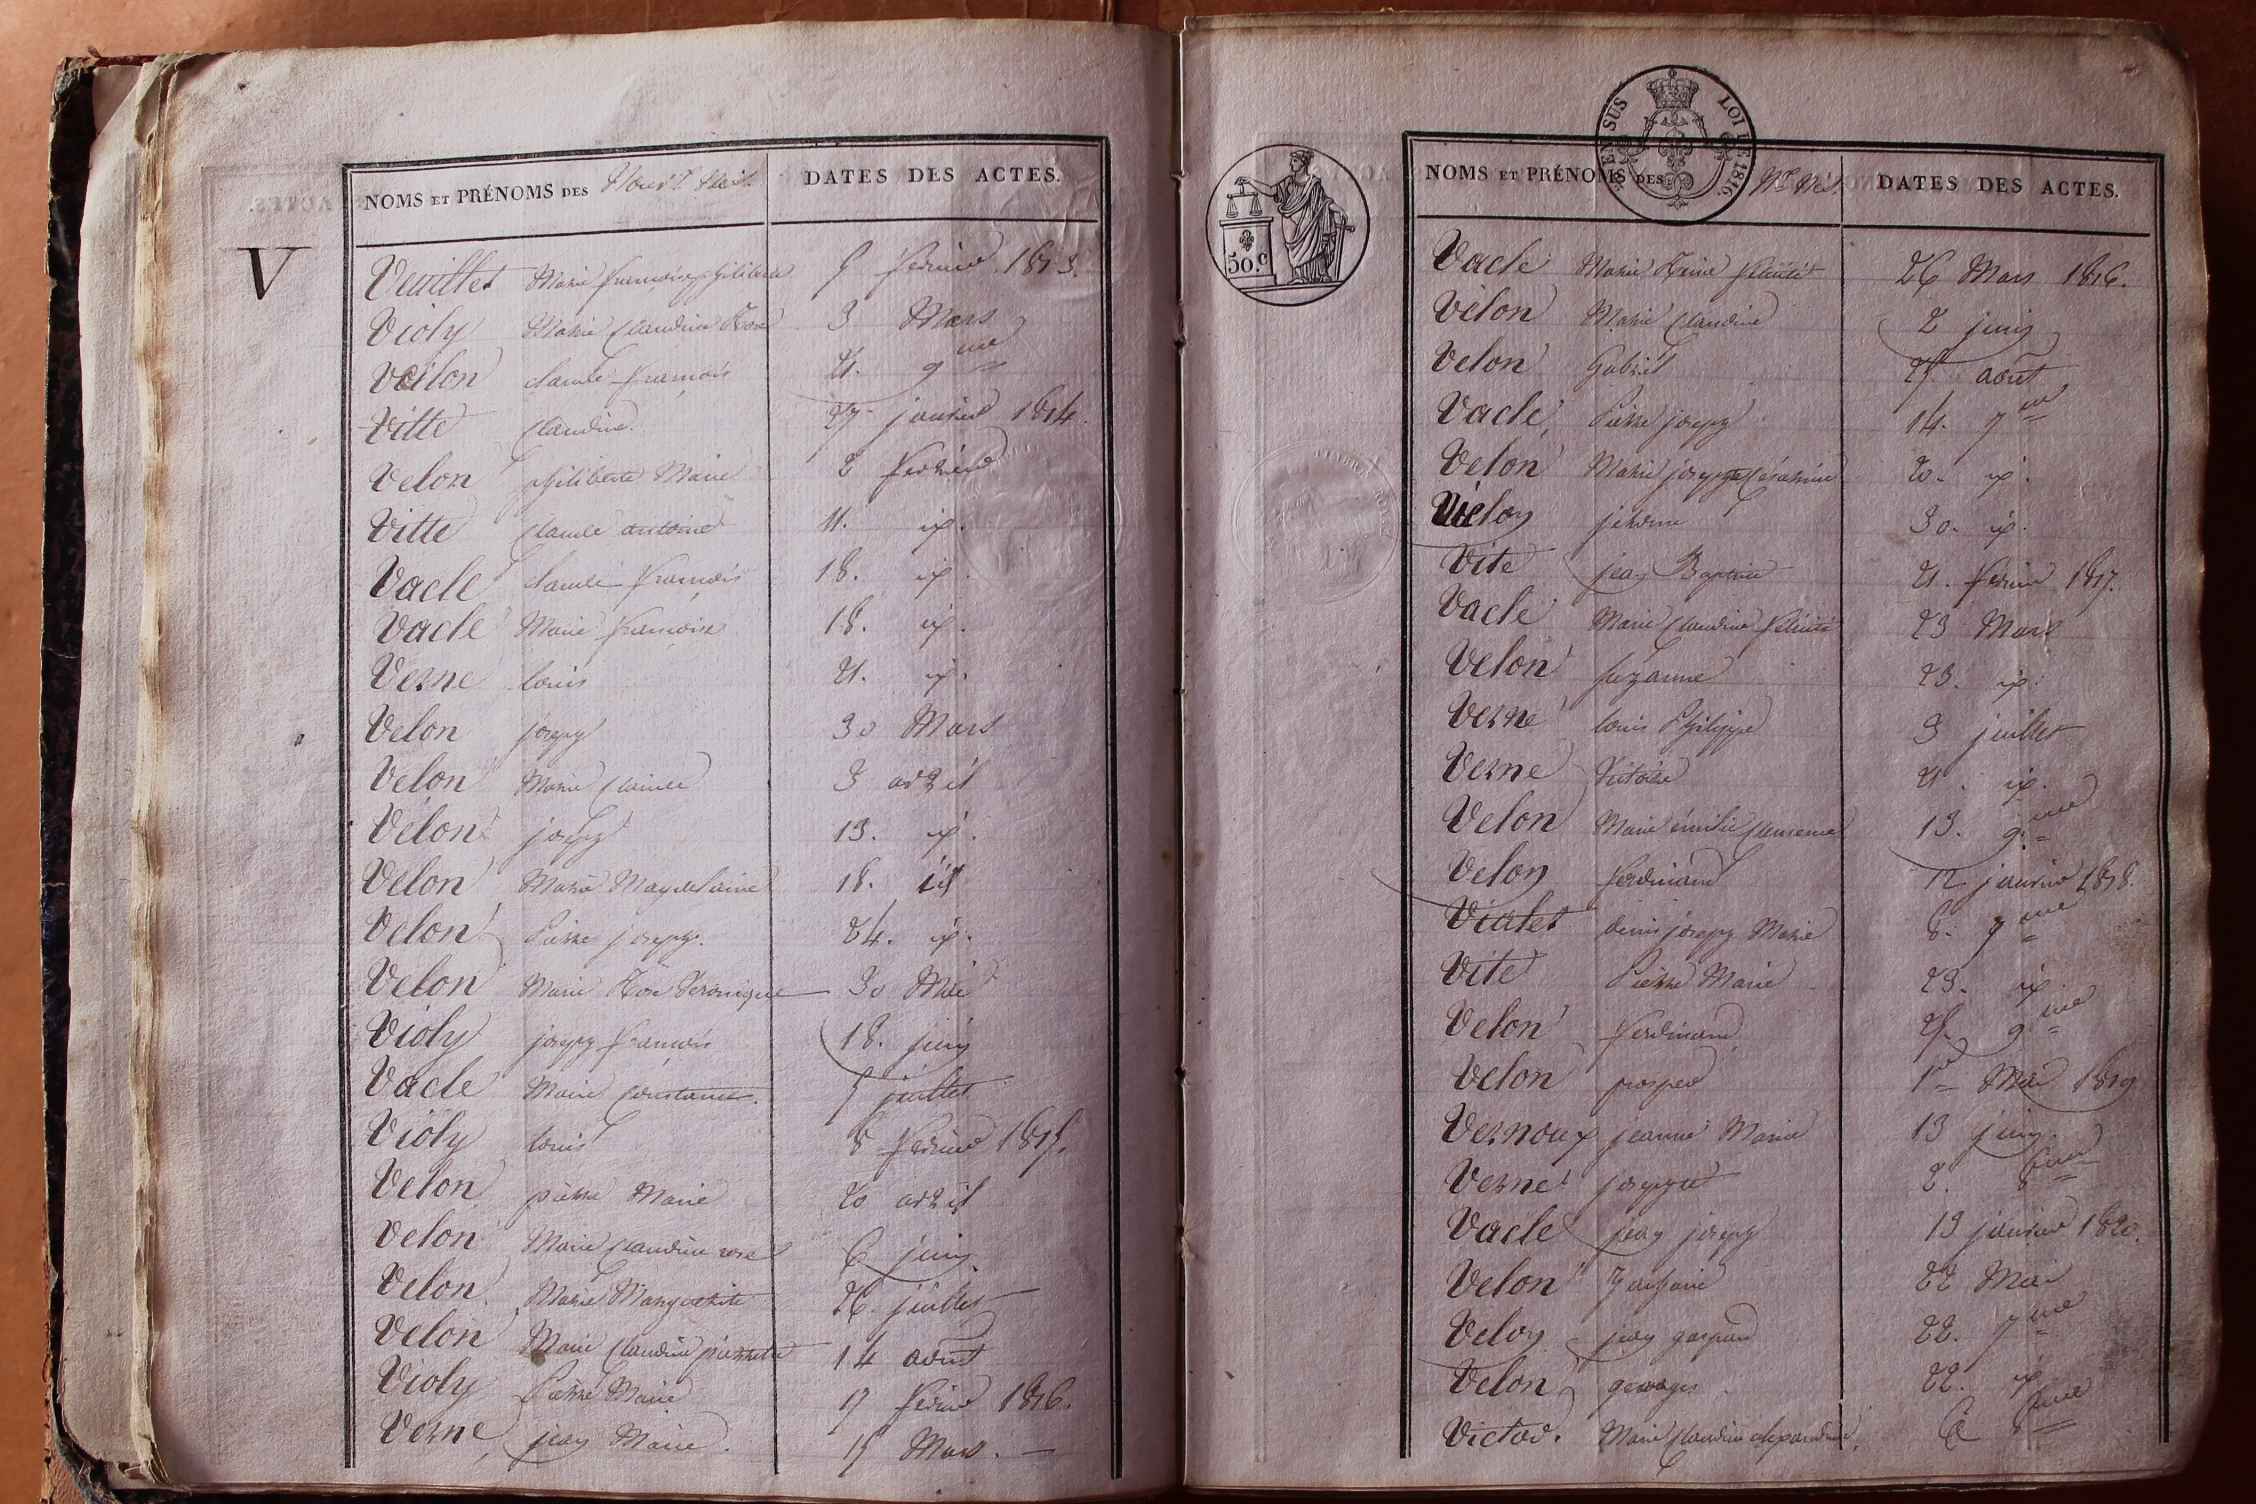 V
NOMS ET PRÉNOMS DES
DATES DES ACTES.
Veuillet Marie françoise philiberte 5 février 1813.
Violy Marie Claudine Rose 3 Mars
Voilon Claude françois 21. 9me
Vitte Claudine 27 janvier 1814.
Velon philiberte Marie 2 février
Vitte Claude antoine 11. id.
Vacle Claude françois 18. id.
Vacle Marie françoise 18. id.
Verne louis 21. id.
Velon joseph 30 Mars
Velon Marie Claude 3 avril
Velon joseph 13. id.
Velon Marie Magdelaine 18. id
Velon Pierre joseph. 24. id.
Velon Marie Rose Veronique 30 Mai
Violy joseph françois 18. juin
Vacle Marie Constance. 5 juillet
Violy louis 8 février 1815.
Velon pierre Marie 20 avril
Velon Marie Claudine rose 6 juin
Velon Marie Marguerite 26. juillet
Velon Marie Claudine pierrette 14 août
Violy Pierre Marie 17 février 1816.
Verne jean Marie. 15 Mars.
EN SUS
LOI DE 1816.
50.C
NOMS ET PRÉNOMS DES
DATES DES ACTES.
Vacle Marie Reine félicité 26 Mars 1816.
Velon Marie Claudine 2 juin
Velon Gabriel 25. août
Vacle Pierre joseph 14. 7me
Velon Marie josephe Césarine 20. id.
Vielon jérôme 30. id.
Vite jean Baptiste 21. février 1817.
Vacle Marie Claudine félicité 23 Mars
Velon suzanne 23. id.
Verne louis Philippe 3 juillet
Verne Victoire 21. id.
Velon Marie émilie Clemence 13. 9me
Velon ferdinand 12 janvier 1818.
Vialet denis joseph Marie 8. 7me
Vite Pierre Marie 23. id
Velon ferdinand 25. 9me
Velon prosper 1er Mai 1819
Vernoux jeanne Marie 13 juin.
Vernet josephte 2. 8me
Vacle jean joseph 13 janvier 1820.
Velon 22 Mai
Velon jean gaspard 22. 7me
Velon georges 22. id
Victor. Marie Claudine alexandrine. 8me